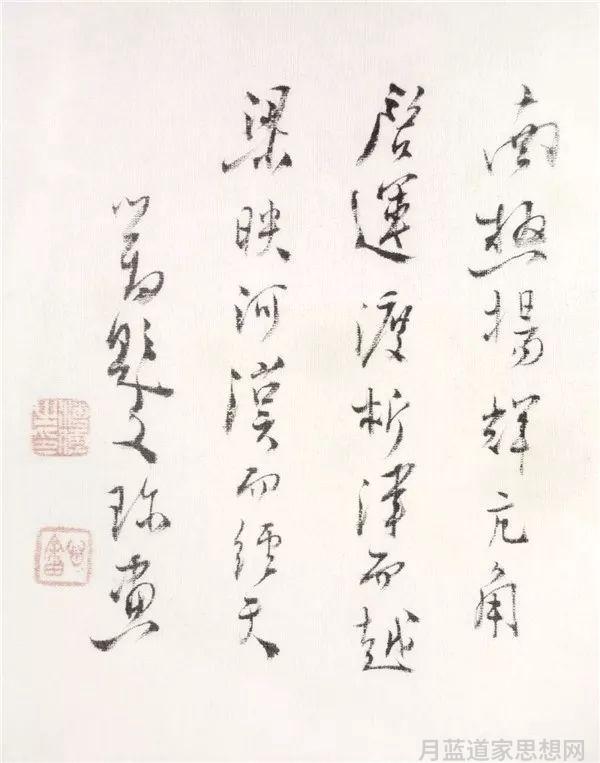 南極揚輝亢角
啓運渡析津而越
梁映河漢而經天
題文珍畫
月蓝道家思想网